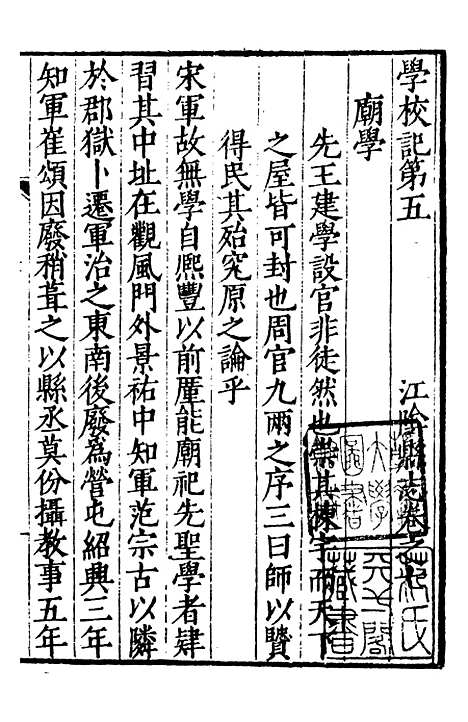 學校記第五 江陰縣志卷之七
廟學
先王建學設官非徒然也崇其棟宇而天下
之屋皆可封也周官九兩之序三曰師以賢
得民其殆究原之論乎
宋軍故無學自熈豐以前廑能廟祀先聖學者肄
習其中址在觀風門外景祐中知軍范宗古以隣
於郡獄卜遷軍治之東南後廢為營屯紹興三年
知軍崔頌因廢稍葺之以縣丞莫份攝教事五年
天一閣
藏書